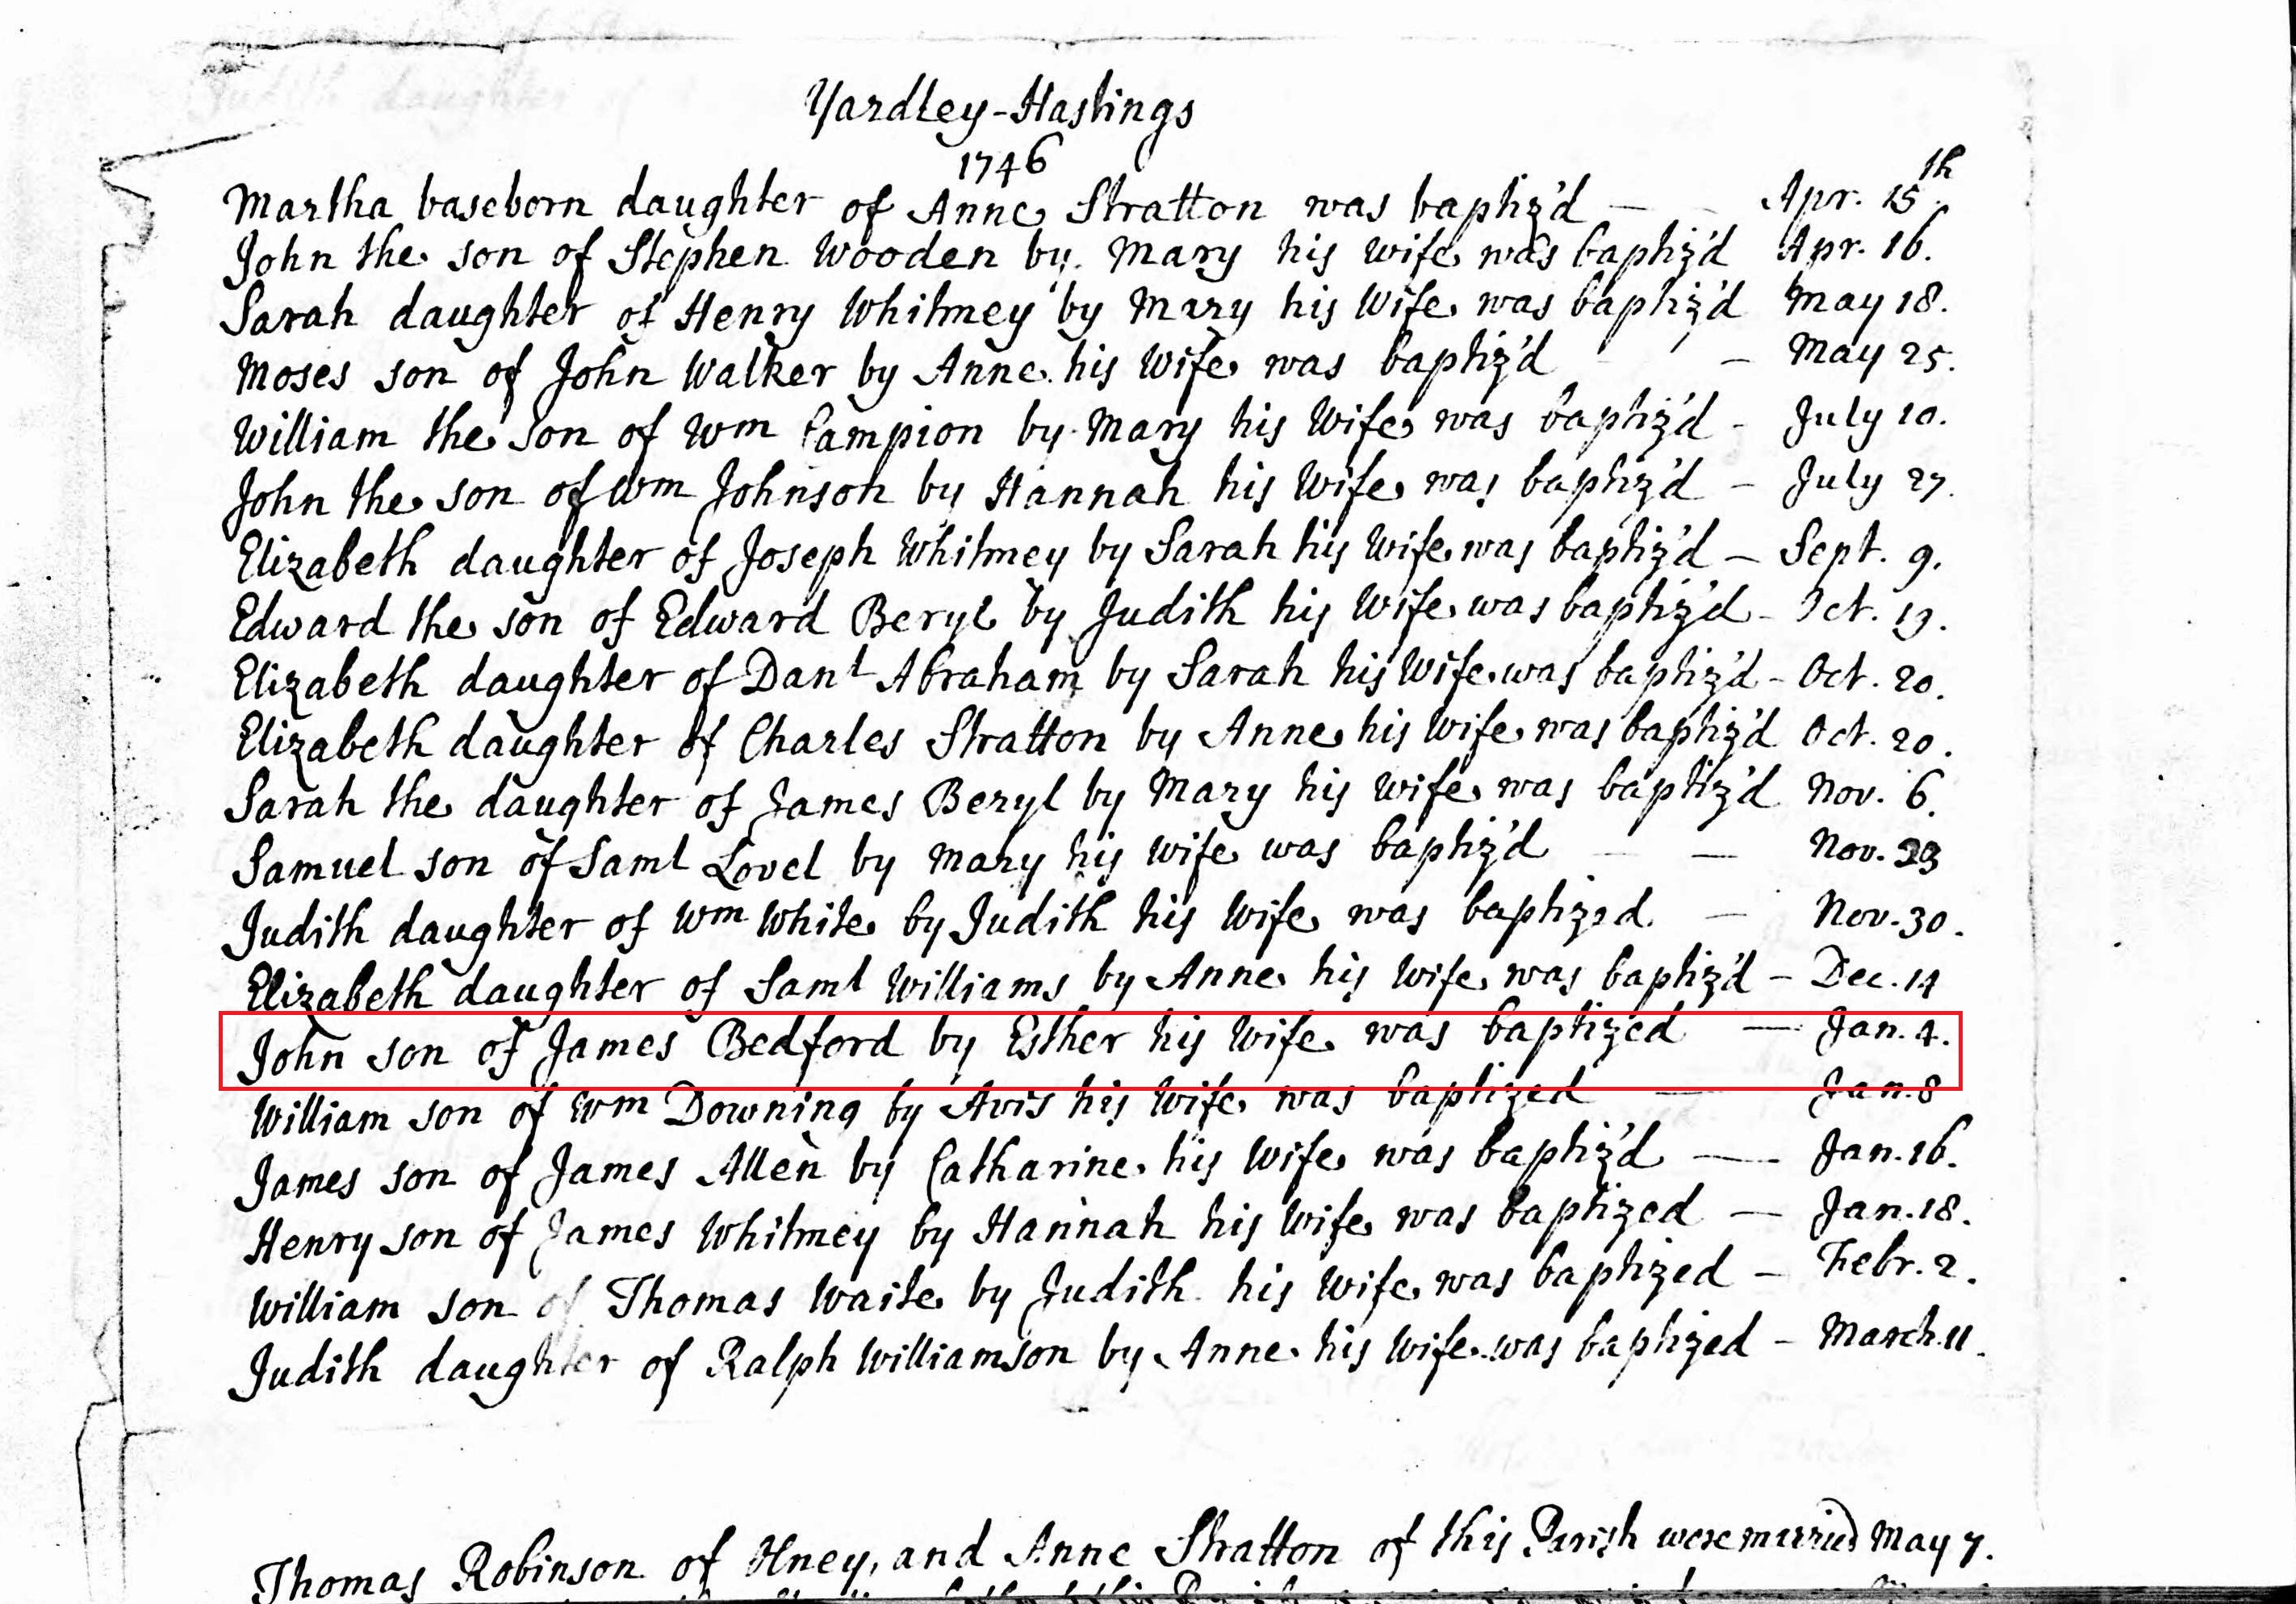 Yardley-Hastings
1746
Martha baseborn daughter of Anne Stratton was baptiz'd — Apr. 15th
John the son of Stephen Wooden by Mary his Wife was baptiz'd Apr. 16.
Sarah daughter of Henry Whitmey by Mary his Wife was baptiz'd May 18.
Moses son of John Walker by Anne his Wife was baptiz'd — May 25.
William the son of Wm Campion by Mary his Wife was baptiz'd - July 10.
John the son of Wm Johnson by Hannah his Wife was baptiz'd - July 27.
Elizabeth daughter of Joseph Whitmey by Sarah his Wife was baptiz'd - Sept. 9.
Edward the son of Edward Beryl by Judith his Wife was baptiz'd - Oct. 19.
Elizabeth daughter of Danl Abraham by Sarah his Wife was baptiz'd - Oct. 20.
Elizabeth daughter of Charles Stratton by Anne his Wife was baptiz'd Oct. 20.
Sarah the daughter of James Beryl by Mary his Wife was baptiz'd Nov. 6.
Samuel son of Saml Lovel by Mary his Wife was baptiz'd — — Nov. 23
Judith daughter of Wm White by Judith his Wife was baptized — Nov. 30.
Elizabeth daughter of Saml Williams by Anne his Wife was baptiz'd - Dec. 14
John son of James Bedford by Esther his Wife was baptized — Jan. 4.
William son of Wm Downing by Avis his Wife was baptized — Jan. 8
James son of James Allen by Catharine his Wife was baptiz'd — Jan. 16.
Henry son of James Whitmey by Hannah his Wife was baptized — Jan. 18.
William son of Thomas Waite by Judith his Wife was baptized - Febr. 2.
Judith daughter of Ralph Williamson by Anne his Wife was baptized - March 11.
Thomas Robinson of and Anne Stratton of this Parish were married May 7.